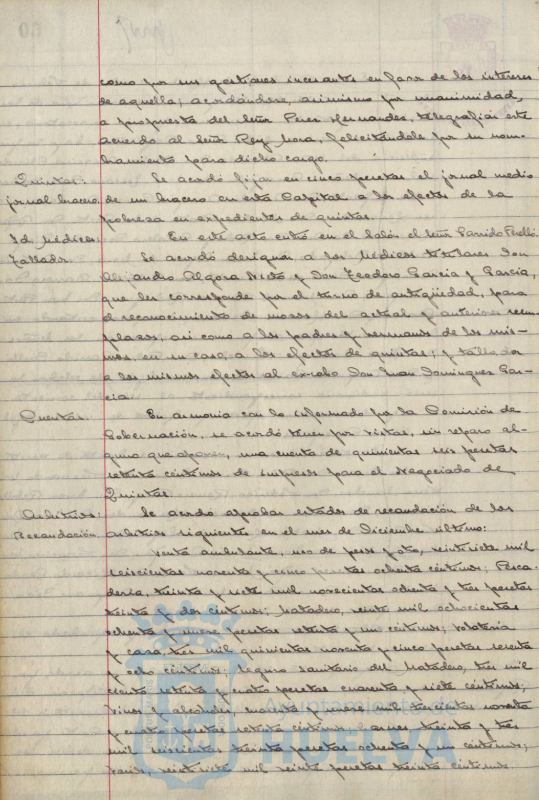 como por sus gestiones incesantes en favor de los intereses
de aquella; acordándose, asimismo por unanimidad,
a propuesta del Señor Perez Hernandez, telegrafiar este
acuerdo al Señor Rey Mora, felicitándole por su nom-
bramiento para dicho cargo.
Quintas:
jornal bracero.
Se acordó fijar en cinco pesetas el jornal medio
de un bracero en esta Capital a los efectos de la
pobreza en expedientes de quintas.
Id. Médicos
Tallador.
En este acto entró en el Salón el Señor Garrido Perelló.
Se acordó designar a los Médicos titulares Don
Alejandro Algora Nieto y Don Teodoro Garcia y Garcia,
que les corresponde por el turno de antigüedad, para
el reconocimiento de mozos del actual y anteriores reem-
plazos, asi como a los padres y hermanos de los mis-
mos, en su caso, a los efectos de quintas; y tallador
a los mismos efectos al ex-cabo Don Juan Dominguez Gar-
cia.
Cuentas.
En armonia con lo informado por la Comisión de
Gobernación, se acordó tener por vistas, sin reparo al-
guno que oponer, una cuenta de quinientas seis pesetas
setenta céntimos de impresos para el Negociado de
Quintas.
Arbitrios:
Recaudación.
Se acordó aprobar estados de recaudación de los
arbitrios siguientes en el mes de Diciembre último:
Venta ambulante, uso de pesos y otro, veintisiete mil
seiscientas noventa y cinco pesetas ochenta céntimos; Pesca-
deria, treinta y siete mil novecientas ochenta y tres pesetas
treinta y dos céntimos; Matadero, veinte mil ochocientas
ochenta y nueve pesetas setenta y un céntimos; volateria
y caza, tres mil quinientas noventa y cinco pesetas sesenta
y ocho céntimos; seguro sanitario del Matadero, tres mil
ciento setenta y cuatro pesetas cuarenta y siete céntimos;
vinos y alcoholes cuarenta y nueve mil trescientas noventa
y cuatro pesetas setenta céntimos; carnes treinta y tres
mil seiscientas treinta pesetas ochenta y un céntimos;
veintisiete mil veinte pesetas treinta céntimos.
Ayuntamiento de
HUELVA